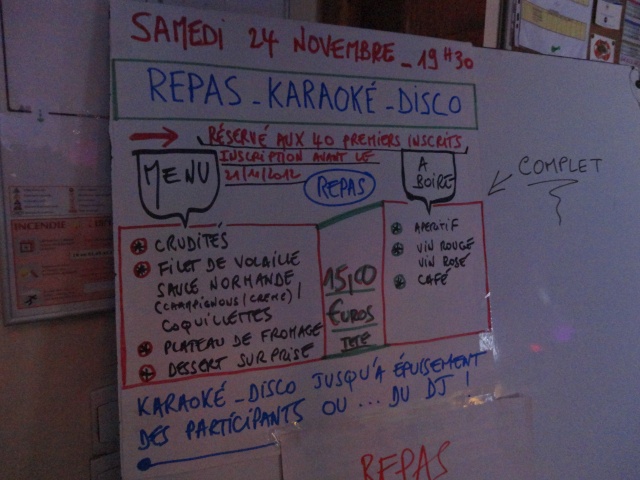 SAMEDI 24 NOVEMBRE _ 19H30
REPAS _ KARAOKÉ _ DISCO
RÉSERVÉ AUX 40 PREMIERS INSCRITS
INSCRIPTION AVANT LE
21/11/2012
REPAS
MENU
CRUDITÉS
FILET DE VOLAILLE
SAUCE NORMANDE
(CHAMPIGNONS/CREME)/
COQUILLETTES
PLATEAU DE FROMAGE
DESSERT SURPRISE
15,00
EUROS
A
BOIRE
APERITIF
VIN ROUGE
VIN ROSE
CAFÉ
COMPLET
KARAOKÉ _ DISCO JUSQU'A ÉPUISEMENT
DES PARTICIPANTS OU ... DU DJ !
REPAS
INCENDIE